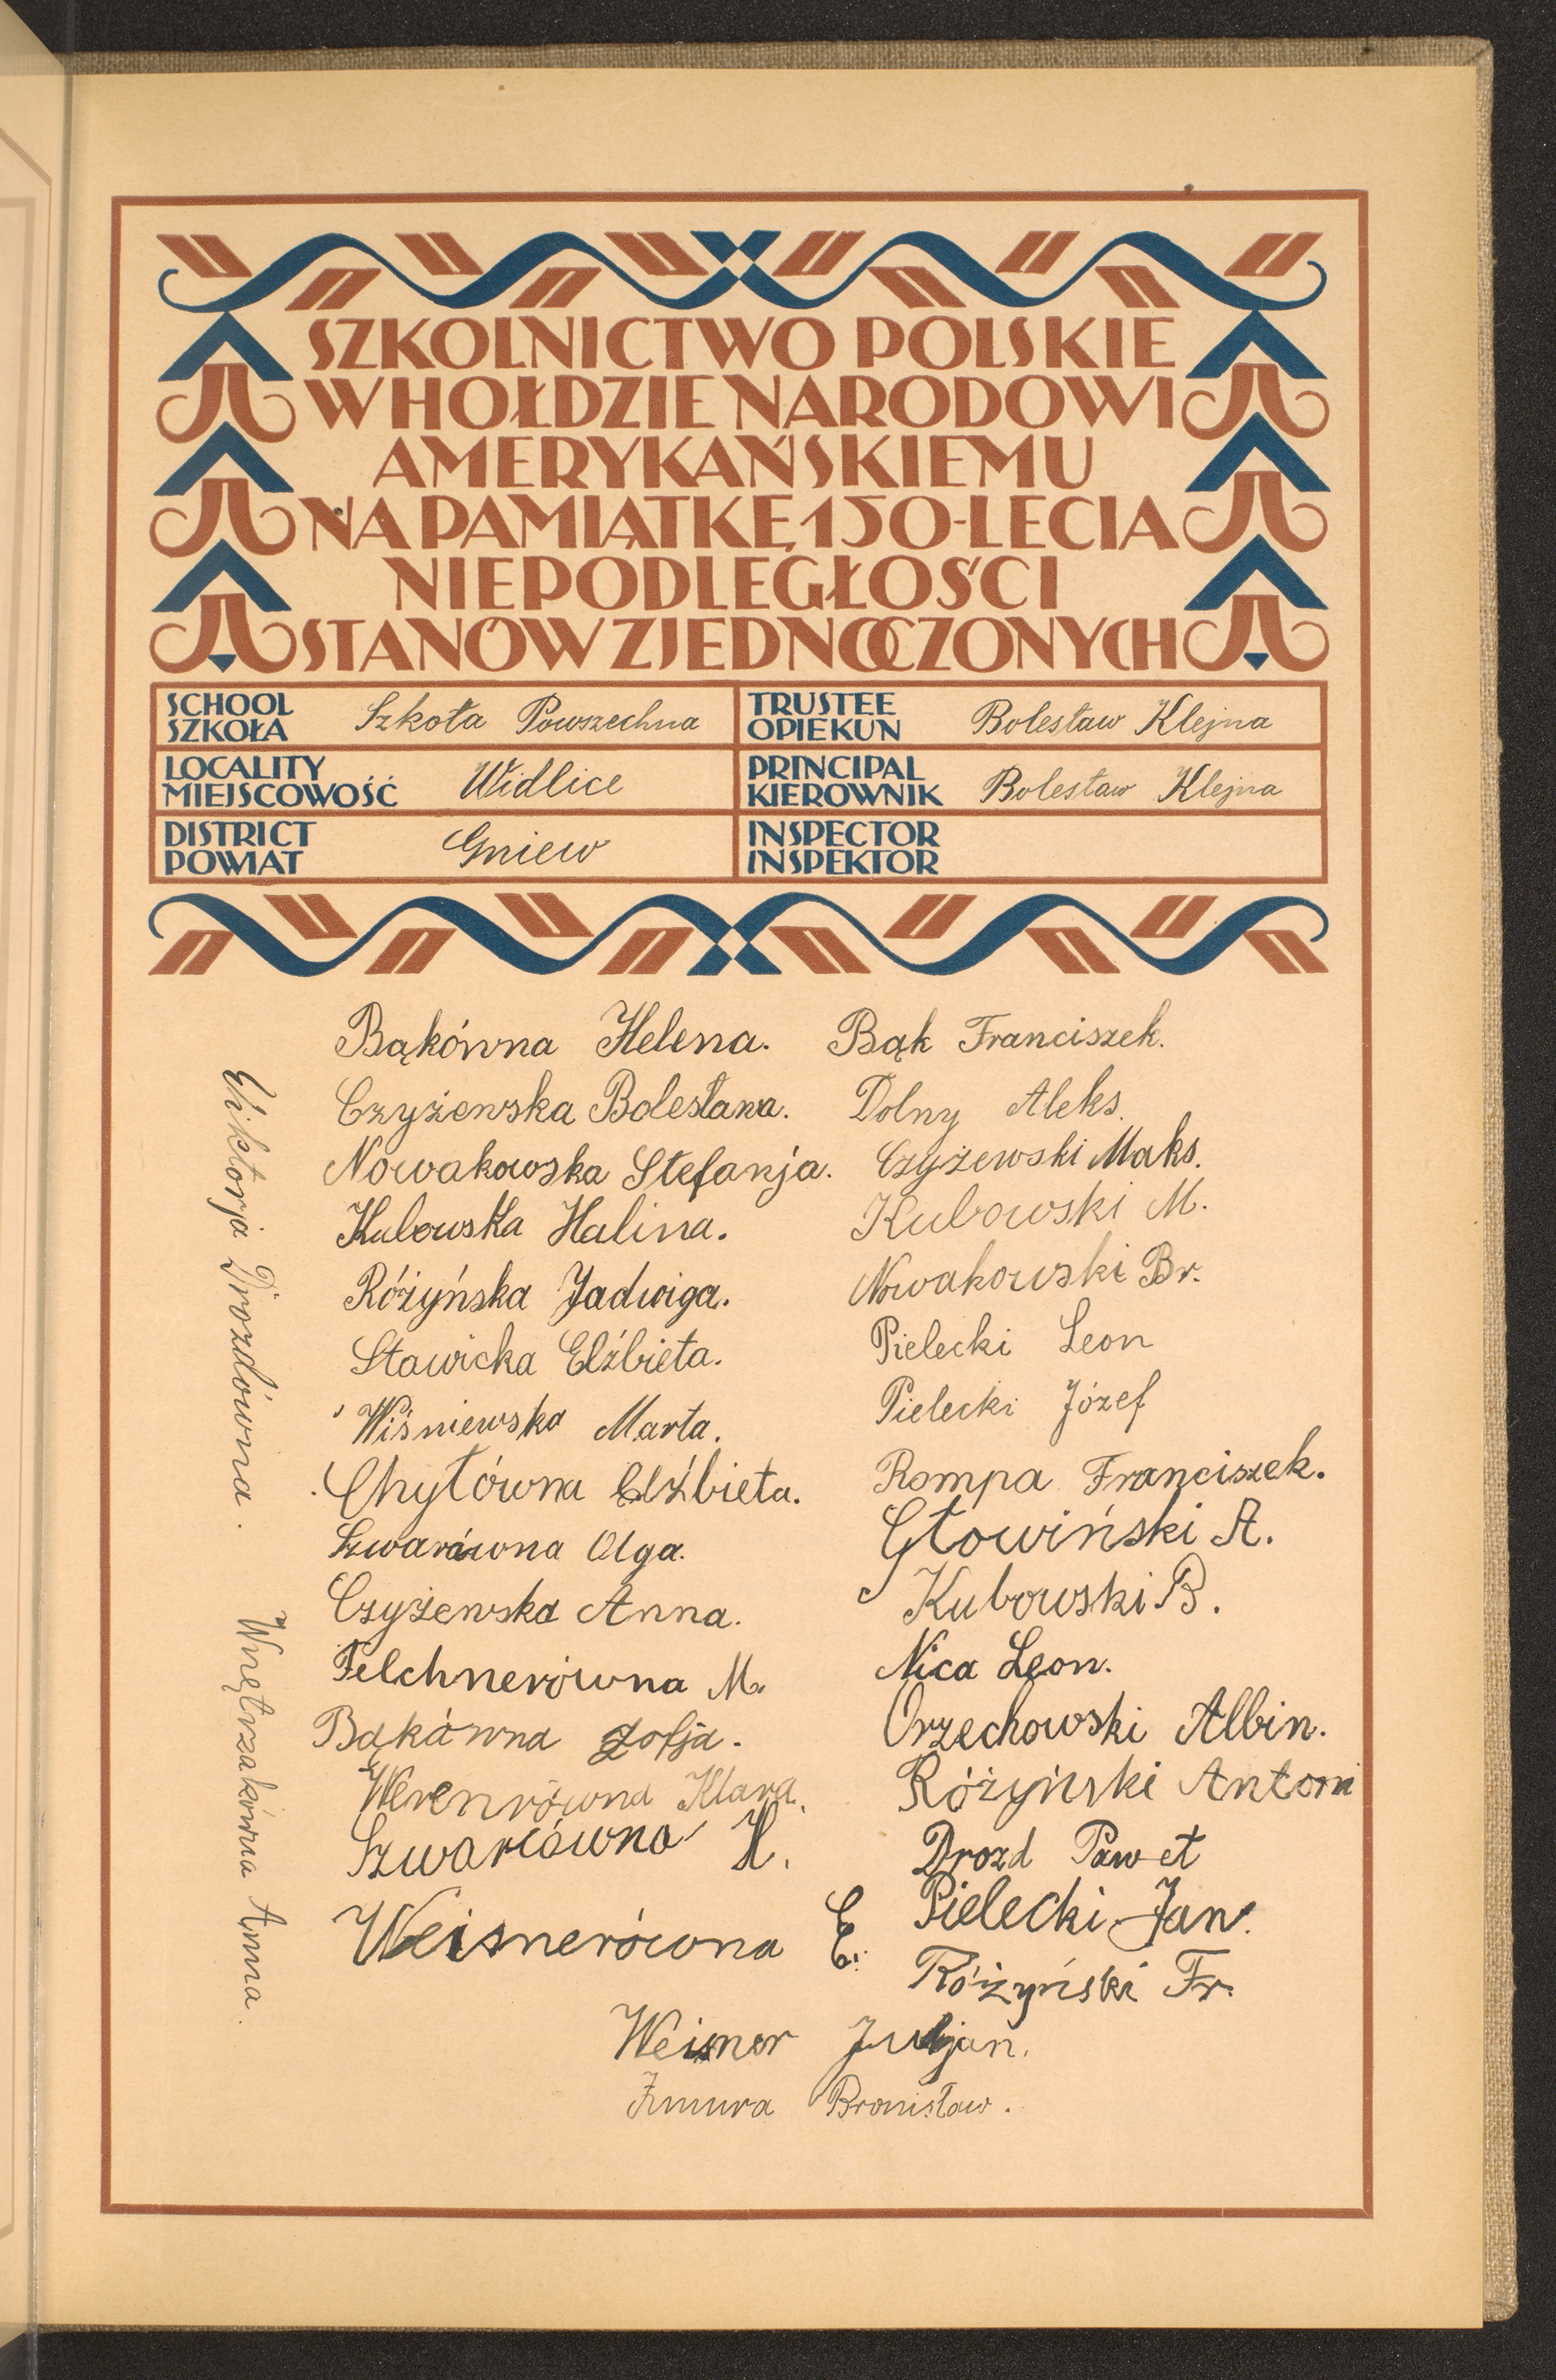 SZKOLNICTWO POLSKIE
W HOŁDZIE NARODOWI
AMERYKAŃSKIEMU
NA PAMIĄTKĘ 150-LECIA
NIEPODLEGŁOŚCI
STANÓW ZJEDNOCZONYCH
SCHOOL
SZKOŁA
Szkoła Powszechna
TRUSTEE
OPIEKUN
Bolesław Klejna
LOCALITY
MIEJSCOWOŚĆ
Widlice
PRINCIPAL
KIEROWNIK
Bolesław Klejna
DISTRICT
POWIAT
Gniew
INSPECTOR
INSPEKTOR
Bąkówna Helena.
Czyżewska Bolesława.
Nowakowska Stefanja.
Kubowska Halina.
Różyńska Jadwiga.
Stawicka Elżbieta.
Wiśniewska Marta.
Chyłówna Elżbieta.
Olga.
Czyżewska Anna.
Felchnerówna M.
Bąkówna Zofja.
Werenrówna Klara.
Szwarcówna H.
Weisnerówna E.
Bąk Franciszek.
Dolny Aleks.
Czyżewski Maks.
Kubowski M.
Nowakowski Br.
Pielecki Leon
Pielecki Józef
Rompa Franciszek.
Głowiński A.
Kubowski B.
Nica Leon.
Orzechowski Albin.
Różyński Antoni
Drozd Paweł
Pielecki Jan.
Różyński Fr.
Weisner Juljan.
Żmura Bronisław.
Wiktorja Drozdówna.
Wnętrzakówna Anna.